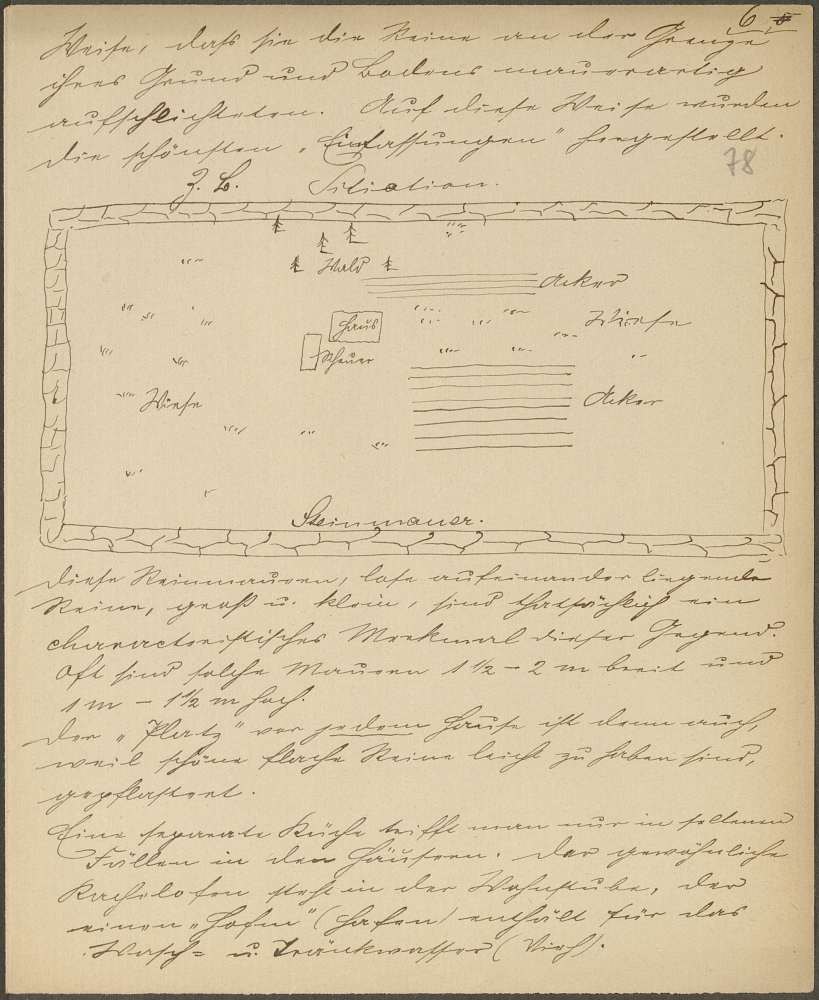 6
Weise, daß sie die Steine an der Grenze
ihres Grund und Bodens mauerartig
aufschlichteten. Auf diese Weise wurden
die schönsten „Einfassungen" hergestellt.
78
Z. B. Sitiation.
Wald
Acker
Haus
Wiese
Scheuer
Wiese
Acker
Steinmauer.
Diese Steinmauern, lose aufeinander liegende
Steine, groß u. klein, sind thatsächlich ein
characteristisches Merkmal dieser Gegend.
Oft sind solche Mauern 1 ½ - 2 m breit und
1 m - 1 ½ m hoch.
Der „Platz" vor jedem Hause ist denn auch,
weil schöne flache Steine leicht zu haben sind,
gepflastert.
Eine separate Küche trifft man nur in seltenen
Fällen in den Häusern. Der gewöhnliche
Kachelofen steht in der Wohnstube, der
einen „Hofm" (Hafen) enthält für das
Wasch= u. Tränkwasser (Vieh).